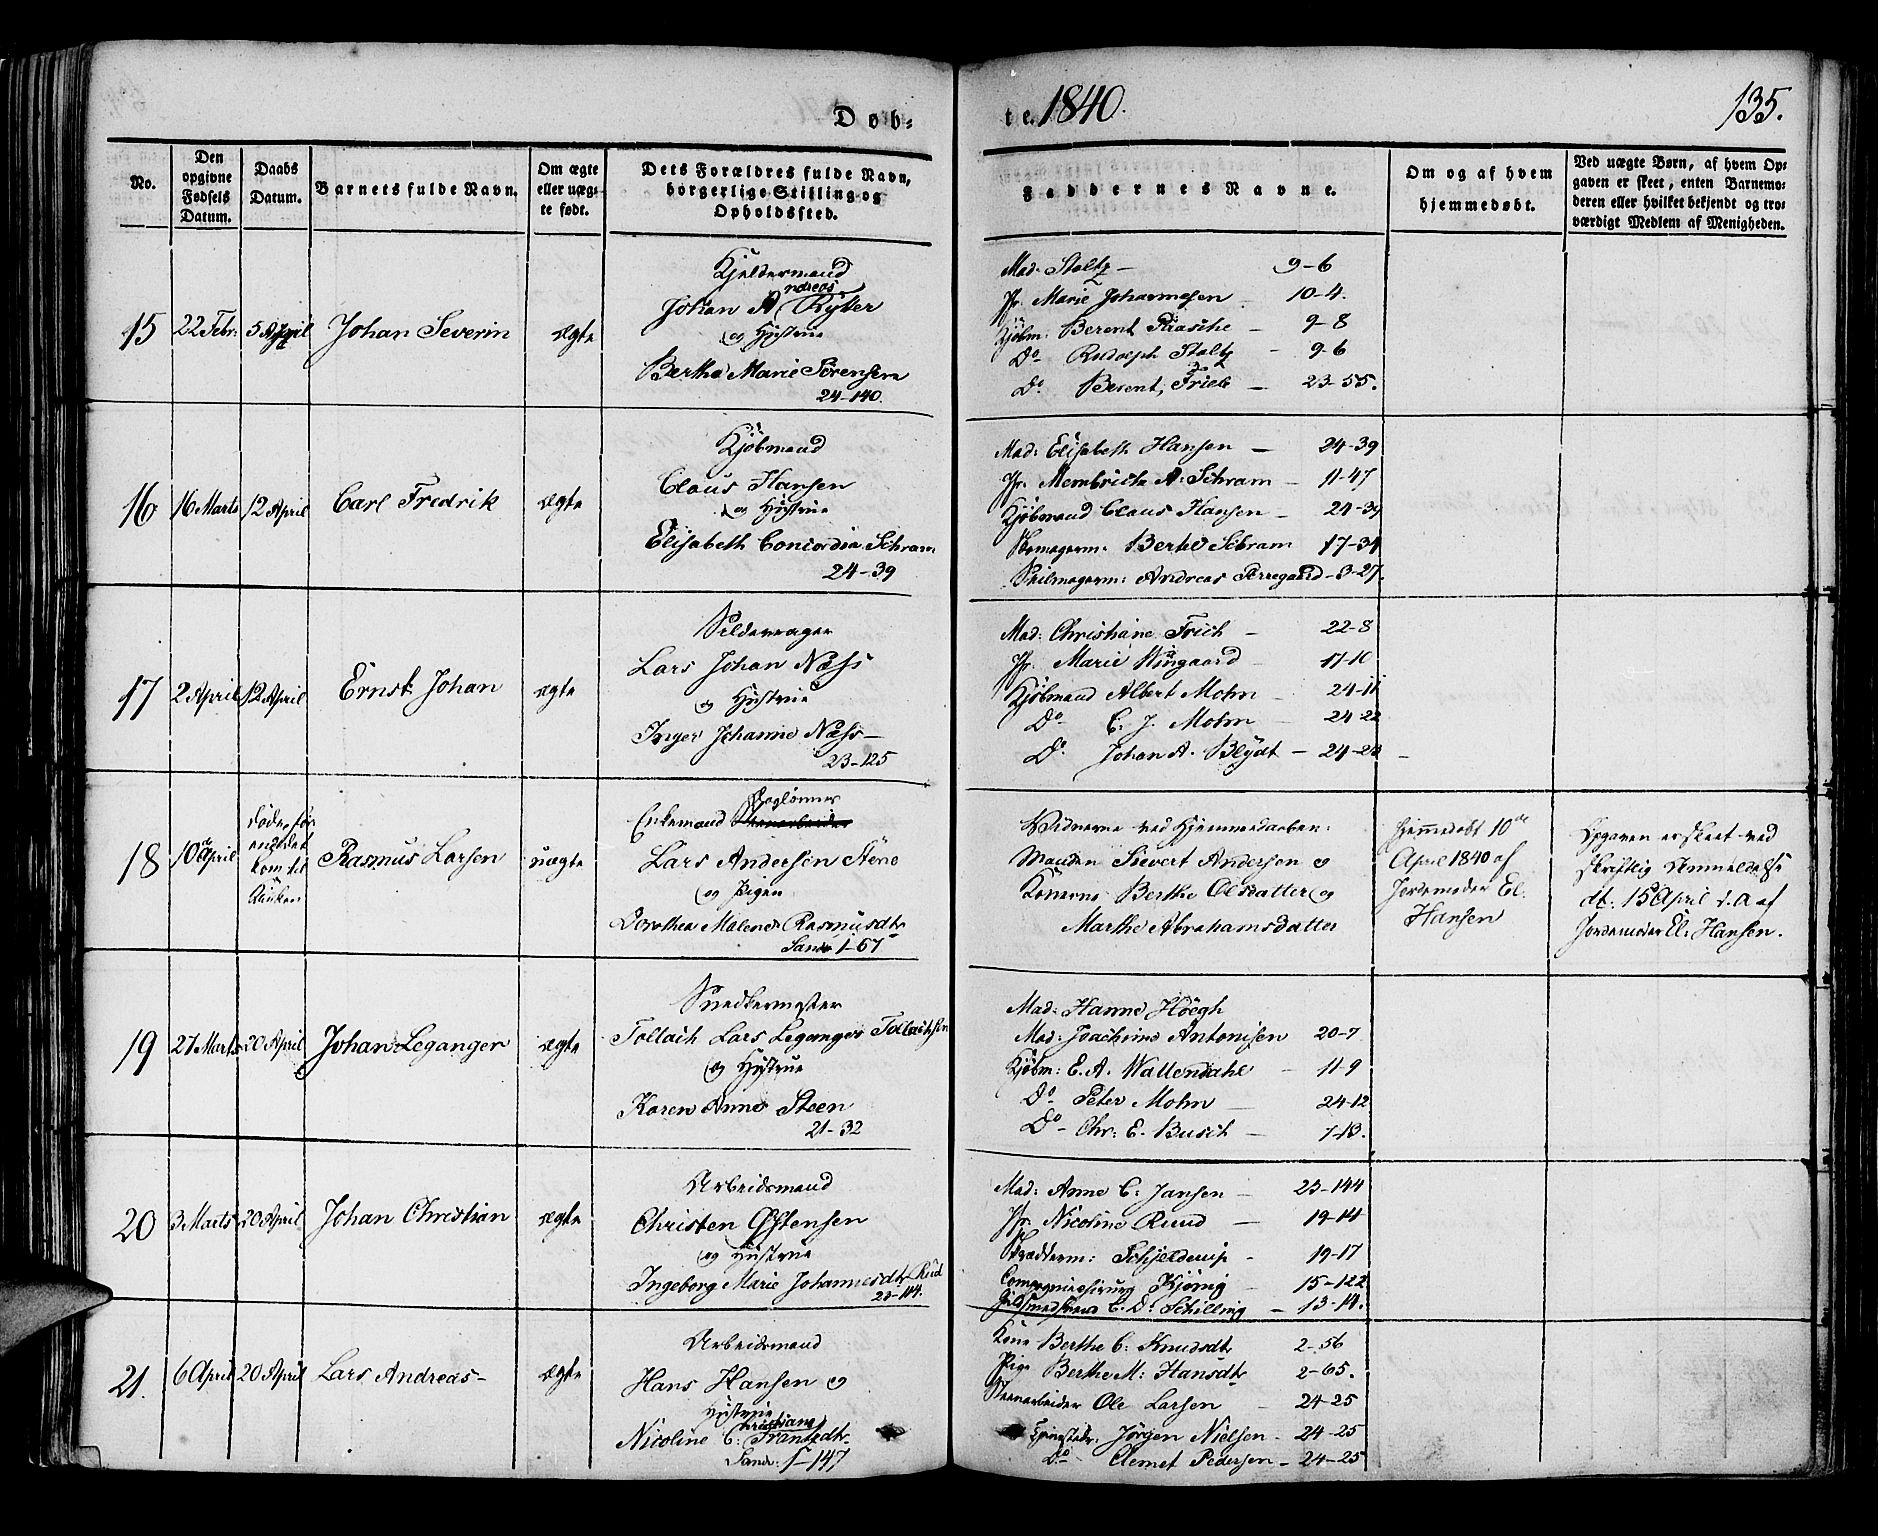 Døb-
te. 1840.
135.
No.
Den opgivne Fødsels Datum.
Daabs Datum.
Barnets fulde Navn.
Om ægte eller uægte født.
Dets Forældres fulde Navn, borgerlige Stilling og Opholdssted.
Faddernes Navne.
Om og af hvem hjemmedøbt.
Ved uægte Børn, af hvem Opgaven er skeet, enten Barnemoderen eller hvilket bekjendt og troværdigt Medlem af Menigheden.
15
22 Febr:
5 April
Johan Severin
ægte
Kjeldermand
Johan Andreas Rÿtter
og Hustrue
Berthe Marie Sørensen
24-140.
Mad: Stoltz — 9-6
Jfr. Marie Johannesen — 10-4.
Kjøbm: Berent Paasche — 9-8
Do Rudolph Stoltz — 9-6
Do Berent Friele — 23-55.
16
16 Marts
12 April
Carl Fredrik
ægte
Kjøbmand
Claus Hansen
og Hustrue
Elisabeth Concordia Schram
24-39
Mad: Elisabeth Hansen — 24-39
Jfr. Membricta A: Schram — 11-47
Kjøbmand Claus Hansen — 24-39
Berhd Schram 17-34
Andreas Perregaard - 3-27.
17
2 April
12 April
Ernst Johan
ægte
Sildevrager
Lars Johan Næss
og Hustrue
Inger Johanne Næss —
23-125
Mad: Christiane Frich — 22-8
Jfr. Marie Wingaard — 17-10
Kjøbmand Albert Mohn — 24-11
Do C. J. Mohn — 24-22
Do. Johan A. Blÿdt — 24-23 —
18
10de April
døde, før
andet
kom til
Kirken
Rasmus Larsen
uægte
Dagløнner
Enkemand
Lars Andersen Stene
og Pigen
Dorothea Malene Rasmusdtr
Sandv 1-67
Vidnerne ved Hjemmedaaben:
Manden Sievert Andersen og
Konerne Berthe Olsdatter og
Marthe Abrahamsdatter
Hjemmedøbt 10de
April 1840 af
Jordemoder El.
Hansen
Opgaven er skeet ved
skriftlig Anmeldelse
dt. 15 April d.A af
Jordemoder El: Hansen.
19
27 Marts
20 April
Johan Leganger
ægte
Snedkermester
Tollach Lars Leganger Tollachsen
og Hustrue
Karen Anne Steen
21-32
Mad: Hanne Höegh
Mad: Joachime Antonisen 20-7
Kjøbm: E. A. Wallendahl — 11-9
Do - Peter Mohn — 24-12
Do - Chr: E. Busch — 7-13.
20
3 Marts
20 April
Johan Christian
ægte
Arbeidsmand
Christen Østensen
og Hustrue
Ingeborg Marie Johannesdtr Rud
23-144.
Mad: Anne C: Jansen — 23-144
Jfr. Nicoline Ruud — 19-14
Skrædderm: Schjelderup - 19-17
Compagniechirurg Kjönig — 15-122
Guldsmedsvend C. D. Schilling — 13-14.
21.
6 April
20 April
Lars Andreas-
ægte
Arbeidsmand
Hans Hansen og
Hustrue
Nicoline Christiane Frantzdtr
Sandv: I-147
Kone Berthe C: Knudsdtr 2-56
Pige Berthe M: Hansdtr 2-65.
Steenarbeider Ole Larsen - 24-25
Jörgen Nielsen - 24-25
Do - Clemet Pedersen - 24-25